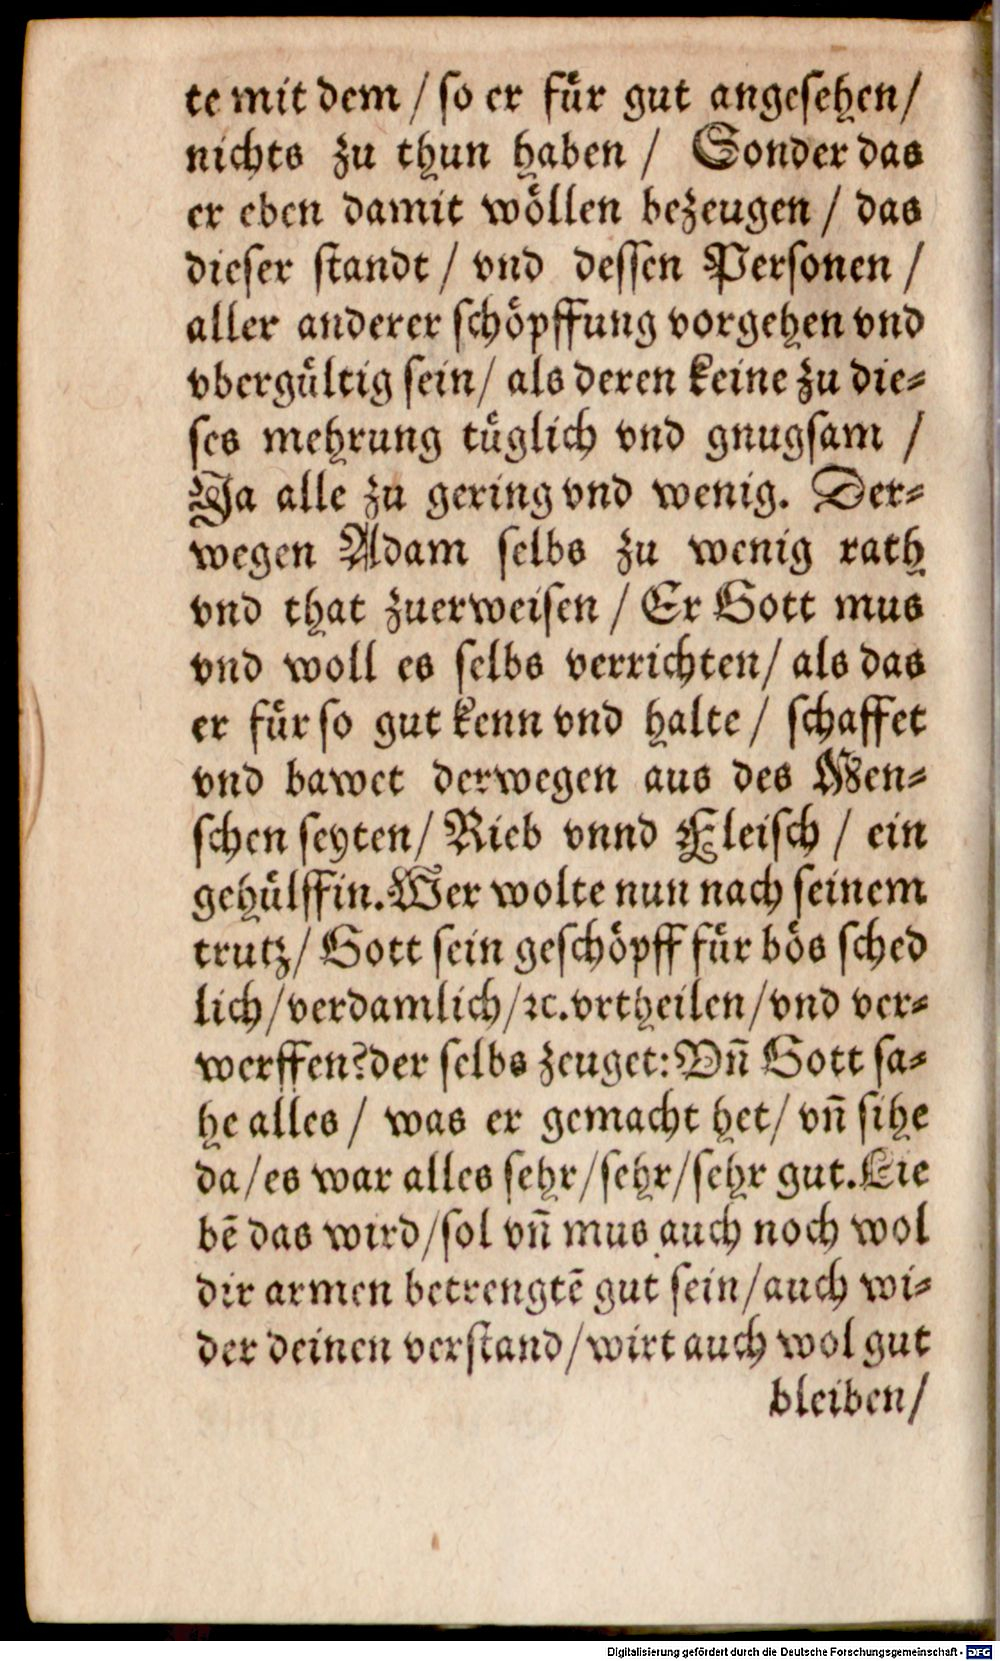 te mit dem / so er für gut angesehen/
nichts zu thun haben / Sonder das
er eben damit wöllen bezeugen / das
dieser standt / vnd dessen Personen /
aller anderer schöpffung vorgehen vnd
vbergültig sein/ als deren keine zu die-
ses mehrung tüglich vnd gnugsam /
Ja alle zu gering vnd wenig. Der-
wegen Adam selbs zu wenig rath
vnd that zuerweisen / Er Gott mus
vnd woll es selbs verrichten/ als das
er für so gut kenn vnd halte / schaffet
vnd bawet derwegen aus des Men-
schen seyten/ Rieb vnnd Fleisch / ein
gehülffin. Wer wolte nun nach seinem
trutz/ Gott sein geschöpff für bös sched
lich/verdamlich/ꝛc. vrtheilen/vnd ver-
werffen? der selbs zeuget: Vñ Gott sa-
he alles / was er gemacht het/ vñ sihe
da/es war alles sehr/sehr/sehr gut. Lie
bē das wird/sol vñ mus auch noch wol
dir armen betrengtē gut sein/auch wi-
der deinen verstand/wirt auch wol gut
bleiben/
Digitalisierung gefördert durch die Deutsche Forschungsgemeinschaft - DFG